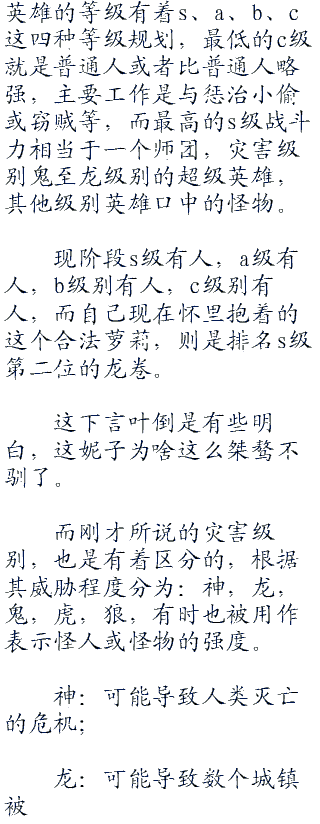 英雄的等级有着s、a、b、c
这四种等级规划，最低的c级
就是普通人或者比普通人略
强，主要工作是与惩治小偷
或窃贼等，而最高的s级战斗
力相当于一个师团，灾害级
别鬼至龙级别的超级英雄，
其他级别英雄口中的怪物。
现阶段s级有人，a级有
人，b级别有人，c级别有
人，而自己现在怀里抱着的
这个合法萝莉，则是排名s级
第二位的龙卷。
这下言叶倒是有些明
白，这妮子为啥这么桀骜不
驯了。
而刚才所说的灾害级
别，也是有着区分的，根据
其威胁程度分为：神，龙，
鬼，虎，狼，有时也被用作
表示怪人或怪物的强度。
神：可能导致人类灭亡
的危机；
龙：可能导致数个城镇
被